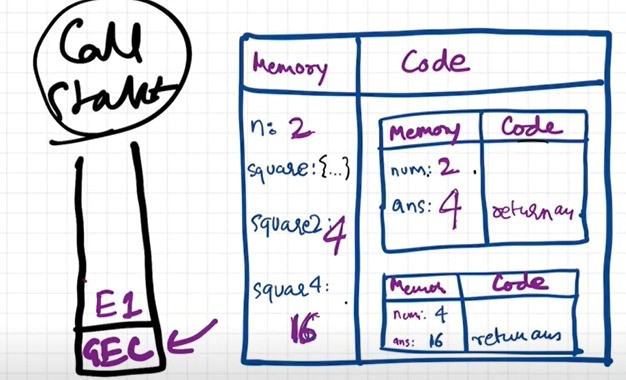 Call
Stakt
E1
GEC
Memory Code
n: 2
square: {...}
square2: 4
squar4:
16
Memory Code
num: 2
ans: 4 return an
Memor Code
num: 4
ans: 16 return ans